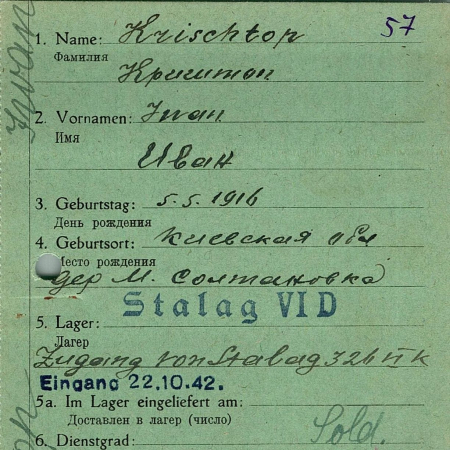 57
1. Name: Krischtop
Фамилия
Криштоп
2. Vornamen: Iwan
Имя
Иван
3. Geburtstag: 5.5.1916
День рождения
4. Geburtsort: Киевская обл
Место рождения
дер М. Солтановка
Stalag VI D
5. Lager:
Лагерь
Zugang von Stalag 326 VI K
Eingang 22.10.42.
5a. Im Lager eingeliefert am:
Доставлен в лагерь (число)
6. Dienstgrad: Sold.
Iwan